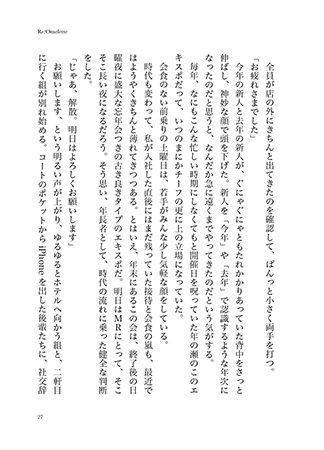 Re:Omelette
全員が店の外にきちんと出てきたのを確認して、ぱんっと小さく両手を打つ。
「お疲れさまでした」
今年の新人と去年の新人が、ぐにゃぐにゃともたれかかりあっていた背中をさっと
伸ばし、神妙な顔で頭を下げた。新人を「今年」や「去年」で認識するような年次に
なったのだと思うと、なんだか急に遠くまでやってきたのだという気がする。
毎年、なにもこんな忙しい時期にしなくてもと開催日を呪っていた年の瀬のこのエ
キスポだって、いつのまにかチーフの更に上の立場になっていた。
会食のない前乗りの土曜日は、若手がみんな少し気軽な顔をしている。
時代も変わって、私が入社した直後にはまだ残っていた接待と会食の嵐も、最近で
はようやくきちんと薄れてきつつある。とはいえ、年末にあるこの会は、終了後の日
曜夜に盛大な忘年会つきの古き良きタイプのエキスポだ。明日はMRにとって、そこ
そこ長い夜になるだろう。そう思い、年長者として、時代の流れに乗った健全な判断
をした。
「じゃあ、解散。明日はよろしくお願いします」
お願いします、という明るい声が上がり、ゆるゆるとホテルへ向かう組と、二軒目
に行く組が別れ始める。コートのポケットからiPhoneを出した後輩たちに、社交辞
27